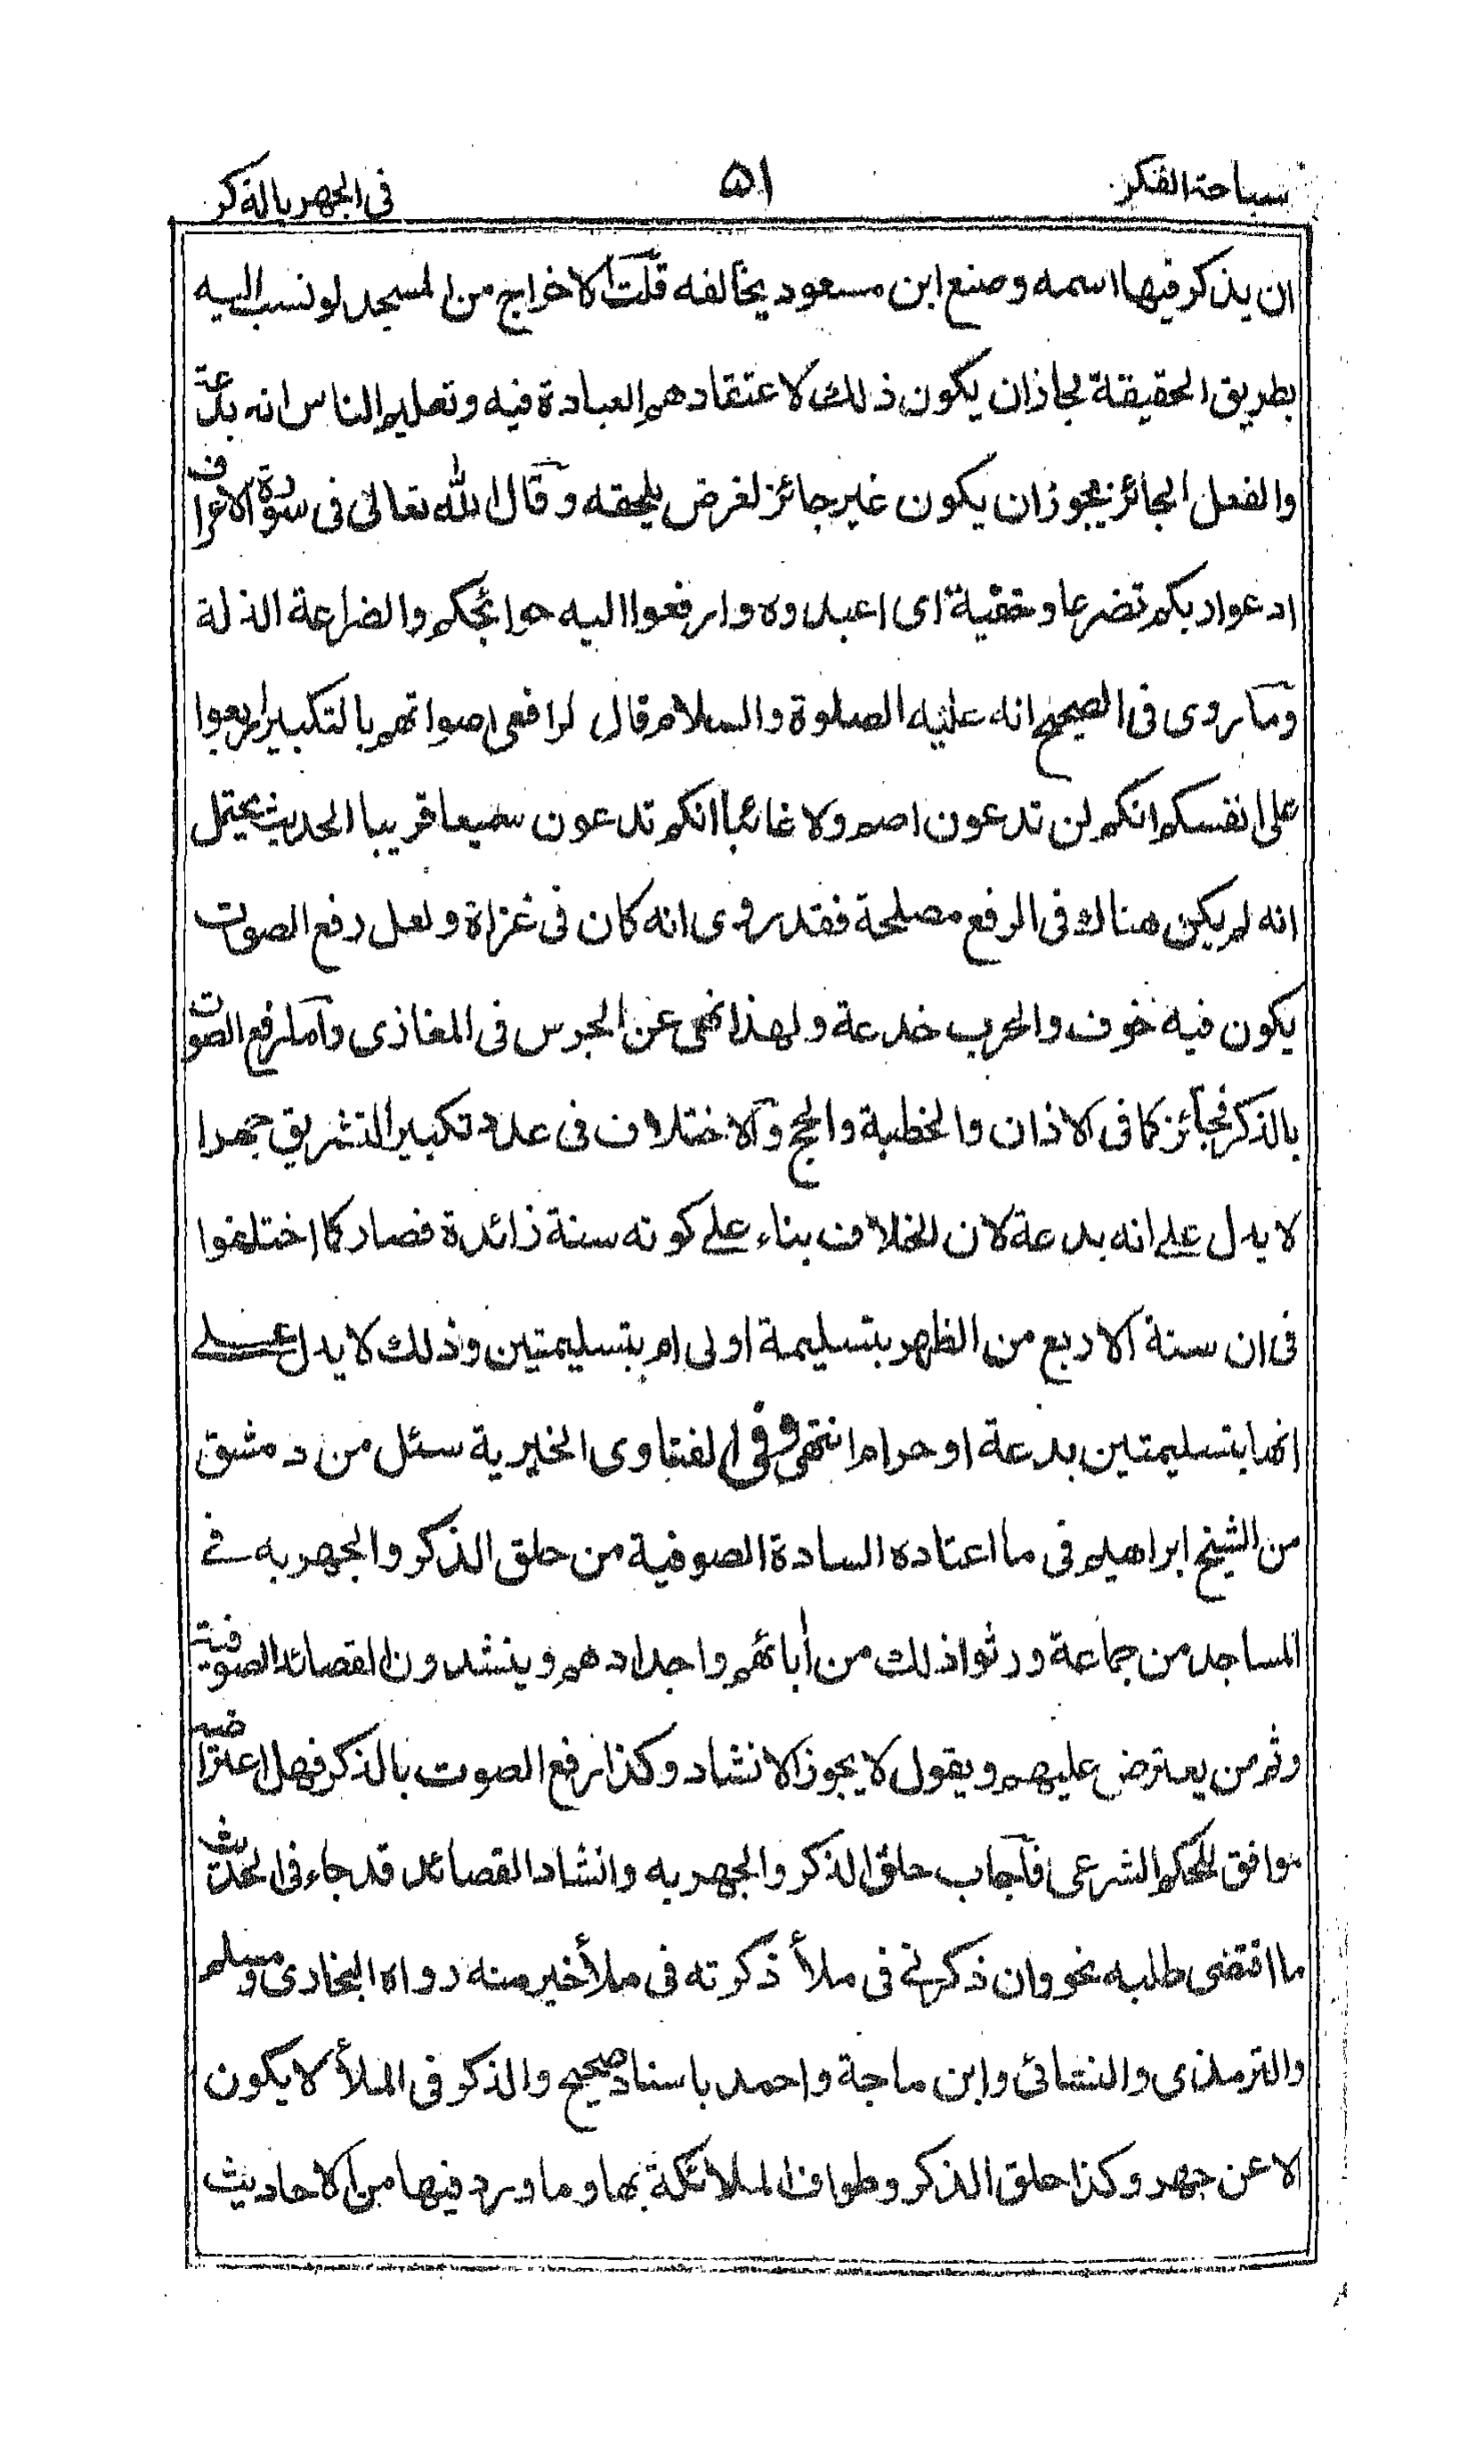 سباحة الفكر ۵۱ فى الجهر بالذكر
ان يذكر فيها اسمه وصنع ابن مسعود يخالفه قلت الاخراج من المسجد لو نسب اليه
بطريق الحقيقة لجاز ان يكون ذلك لاعتقادهم العبادة فيه وتعليم الناس انه بدعة
والفعل الجائز يجوز ان يكون غير جائز لغرض يلحقه وقال الله تعالى فى سورة الاعراف
ادعوا ربكم تضرعا وخفية اى اعبدوه وارفعوا اليه حوائجكم والضراعة الذلة
وما روى فى الصحيح انه عليه الصلوة والسلام قال لرافعى اصواتهم بالتكبير اربعوا
على انفسكم انكم لن تدعون اصم ولا غائبا انكم تدعون سميعا قريبا الحديث يحتمل
انه لم يكن هناك فى الرفع مصلحة فقد روى انه كان فى غزاة ولعل رفع الصوت
يكون فيه خوف والحرب خدعة ولهذا نهى عن الجرس فى المغازى واما رفع الصوت
بالذكر فجائز كما فى الاذان والخطبة والحج والاختلاف فى عدد تكبير التشريق جهرا
لا يدل على انه بدعة لان الخلاف بناء على كونه سنة زائدة فصار كما اختلفوا
فى ان سنة الاربع من الظهر بتسليمة اولى ام بتسليمتين وذلك لا يدل على
انها بتسليمتين بدعة او حرام انتهى وفى الفتاوى الخيرية سئل من دمشق
من الشيخ ابراهيم فى ما اعتاده السادة الصوفية من حلق الذكر والجهر به فى
المساجد من جماعة ورثوا ذلك من أبائهم واجدادهم وينشدون القصائد الصوفية
وثم من يعترض عليهم ويقول لا يجوز الانشاد وكذا رفع الصوت بالذكر فهل اعتراضه
موافق للحكم الشرعى فاجاب حلق الذكر والجهر به وانشاد القصائد قد جاء فى الحديث
ما اقتضى طلبه نحو وان ذكرنى فى ملأ ذكرته فى ملأ خير منه رواه البخارى ومسلم
والترمذى والنسائى وابن ماجة واحمد باسناد صحيح والذكر فى الملأ لا يكون
الا عن جهر وكذا حلق الذكر وطواف الملائكة بها وما ورد فيها من الاحاديث